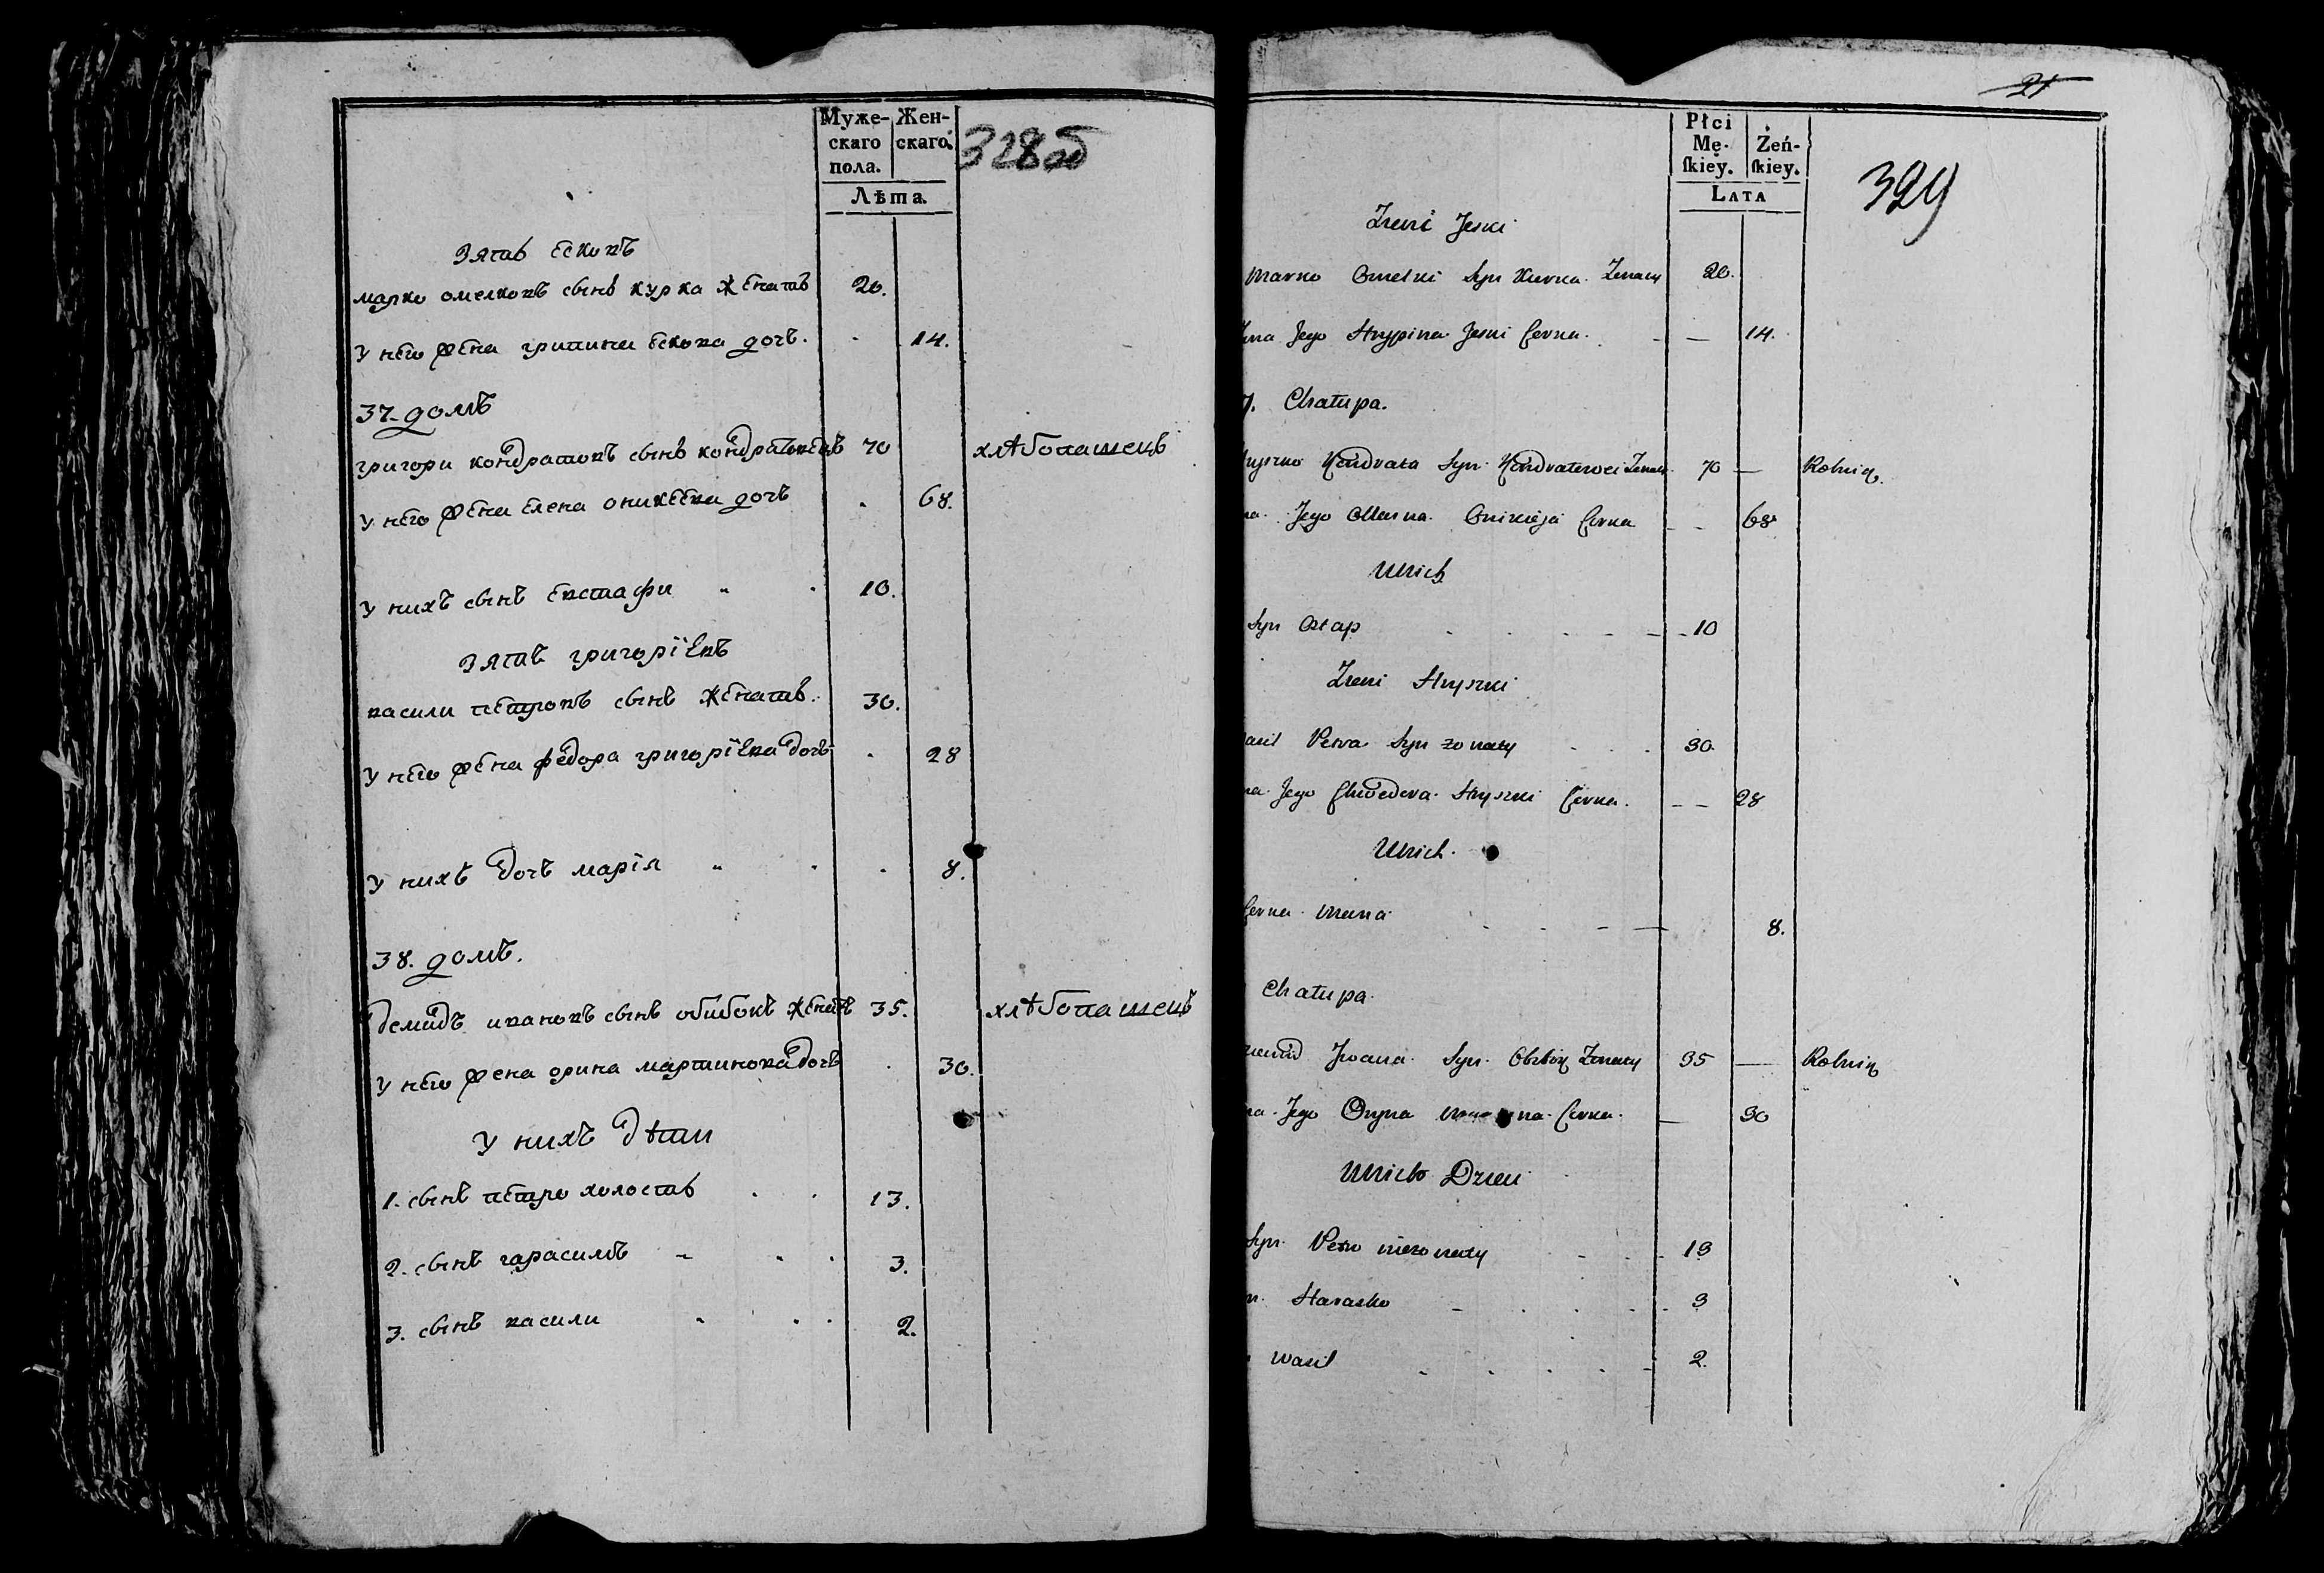 Муже-
скаго
пола.
Жен-
скаго.
Лѣта.
328об
зятъ есковъ
марко омелковъ сынъ курка женатъ 20.
у него жена грипина ескова дочь. 14.
37. домъ
григори кондратовъ сынъ 70 хлѣбопашецъ
у него жена елена оникеева дочь 68.
у нихъ сынъ евстафи 10.
зятъ григоріевъ
васили петровъ сынъ женатъ. 30.
у него жена федора григоріева дочь 28
у нихъ дочь марія 8.
38. домъ.
демидъ ивановъ сынъ обибокъ женатъ 35. хлѣбопашецъ
у него жена орина мартинова дочь 30.
у нихъ дѣти
1. сынъ петро холостъ 13.
2. сынъ гарасимъ 3.
3. сынъ васили 2.
21
Płci
Mę-
ſkiey.
Żeń-
ſkiey.
LATA
329
Zieni Jeski
Marko Omelki Syn Kurka Zonaty 20.
Jego Hrypina Jeski Corka 14.
7. Chałupa.
Kondrata Syn 70 — Rolnik
Jego Onikieja Corka 68
Ulrich
Syn Ostap 10
Zieni Hryszki
Petra Syn zonaty 30.
Jego Chwedora Hryszki Corka. 28
Ulrich.
Corka 8.
Chałupa.
Jwana Syn Obibok Zonaty 35 — Rolnik
Jego Oryna Corka. 30
Ulrich Dzieci
Syn Petro niezonaty 13
Harasko 3
Wasil 2.